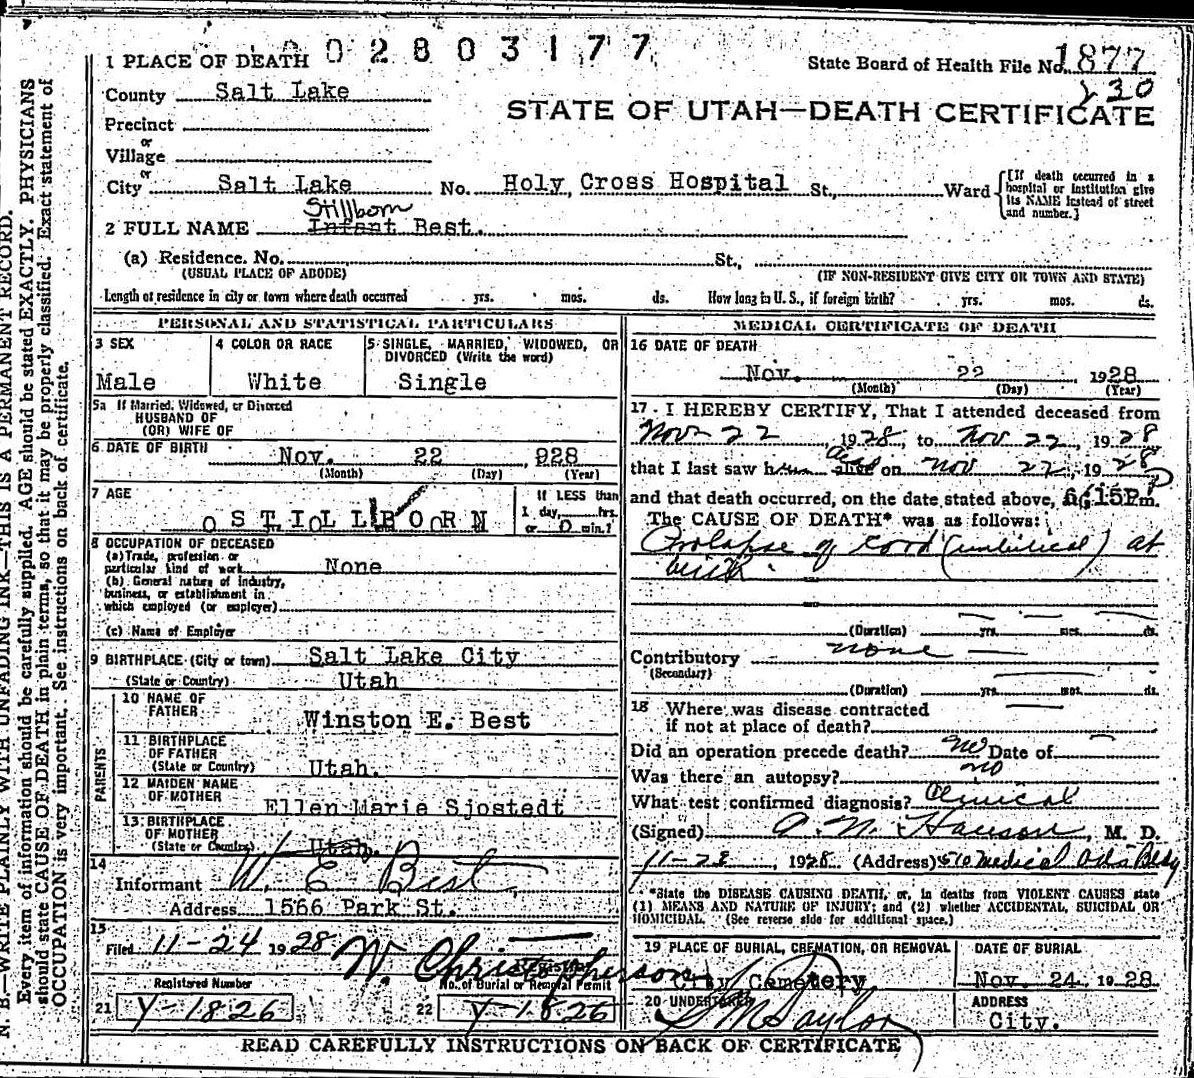 N. B.—WRITE PLAINLY WITH UNFADING INK—THIS IS A PERMANENT RECORD.
Every item of information should be carefully supplied. AGE should be stated EXACTLY. PHYSICIANS
should state CAUSE OF DEATH in plain terms, so that it may be properly classified. Exact statement of
OCCUPATION is very important. See instructions on back of certificate.
0 0 2 8 0 3 1 7 7
1 PLACE OF DEATH
State Board of Health File No. 1877
230
County Salt Lake
STATE OF UTAH—DEATH CERTIFICATE
Precinct
or
Village
or
City Salt Lake No. Holy Cross Hospital St., Ward
[If death occurred in a
hospital or institution give
its NAME instead of street
and number.]
Stillborn
2 FULL NAME Infant Best.
(a) Residence. No. St.,
(USUAL PLACE OF ABODE) (IF NON-RESIDENT GIVE CITY OR TOWN AND STATE)
Length of residence in city or town where death occurred yrs. mos. ds. How long in U. S., if foreign birth? yrs. mos. ds.
PERSONAL AND STATISTICAL PARTICULARS
3 SEX
Male
4 COLOR OR RACE
White
5 SINGLE, MARRIED, WIDOWED, OR
DIVORCED (Write the word)
Single
5a If Married, Widowed, or Divorced
HUSBAND OF
(OR) WIFE OF
6 DATE OF BIRTH
Nov. 22, 928
(Month) (Day) (Year)
7 AGE
STILLBORN
If LESS than
1 day, hrs.
or 0 min.?
8 OCCUPATION OF DECEASED
(a) Trade, profession or
particular kind of work None
(b) General nature of industry,
business, or establishment in
which employed (or employer)
(c) Name of Employer
9 BIRTHPLACE (City or town) Salt Lake City
(State or Country) Utah
PARENTS
10 NAME OF
FATHER
Winston E. Best
11 BIRTHPLACE
OF FATHER
(State or Country) Utah.
12 MAIDEN NAME
OF MOTHER
Ellen Marie Sjostedt
13 BIRTHPLACE
OF MOTHER
(State or Country) Utah.
14
Informant W. E. Best
Address 1566 Park St.
15
Filed 11-24 1928 W. Christopherson
Registered Number
No. of Burial or Removal Permit
21 Y-1826
22 Y-1826
MEDICAL CERTIFICATE OF DEATH
16 DATE OF DEATH
Nov. 22 1928
(Month) (Day) (Year)
17 I HEREBY CERTIFY, That I attended deceased from
Nov 22, 1928, to Nov 22, 1928
that I last saw him alive on Nov 22, 1928
and that death occurred, on the date stated above, at 6:15P m.
The CAUSE OF DEATH* was as follows:
Prolapse of cord (umbilical) at
birth.
(Duration) yrs. mos. ds.
Contributory none
(Secondary)
(Duration) yrs. mos. ds.
18 Where was disease contracted
if not at place of death?
Did an operation precede death? no Date of
Was there an autopsy? no
What test confirmed diagnosis? Clinical
(Signed) A. N. Hanson, M. D.
11-22, 1928 (Address) 510 Medical Arts Bldg
*State the DISEASE CAUSING DEATH, or, in deaths from VIOLENT CAUSES state
(1) MEANS AND NATURE OF INJURY; and (2) whether ACCIDENTAL, SUICIDAL OR
HOMICIDAL. (See reverse side for additional space.)
19 PLACE OF BURIAL, CREMATION, OR REMOVAL
City Cemetery
DATE OF BURIAL
Nov. 24, 1928
20 UNDERTAKER
S M Taylor
ADDRESS
City.
READ CAREFULLY INSTRUCTIONS ON BACK OF CERTIFICATE